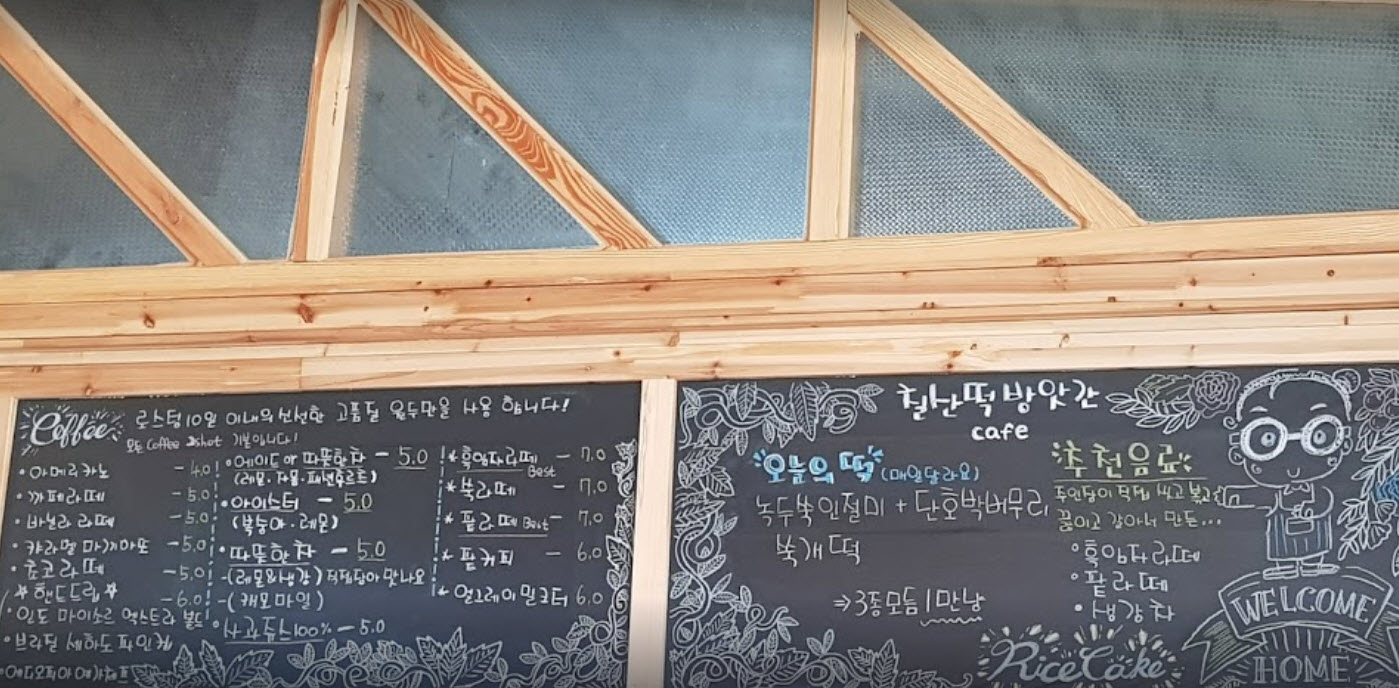 Coffee
로스팅 10일 이내의 신선한 고품질 원두만을 사용 합니다!
모든 Coffee 2shot 기본입니다!
• 아메리카노 - 4.0
• 까페라떼 - 5.0
• 바닐라 라떼 - 5.0
• 캬라멜 마끼아또 - 5.0
• 쵸코라떼 - 5.0
★핸드드립★ - 6.0
• 인도 마이소르 엑스트라 볼드
• 브라질 세하도 파인케
• 에디오피아 예가체프
• 에이드 아 따뜻한차 - 5.0
(레몬.자몽.패션후르츠)
• 아이스티 - 5.0
(복숭아.레몬)
• 따뜻한차 - 5.0
-(레몬&생강) 직접담아 맛나요
-(캐모마일)
• 사과쥬스100% - 5.0
* 흑임자라떼 - 7.0
Best
* 쑥라떼 - 7.0
* 팥라떼 Best - 7.0
* 팥커피 - 6.0
* 얼그레이밀크티 6.0
칠산떡방앗간
cafe
오늘의 떡 (매일달라요)
녹두쑥인절미 + 단호박버무리
쑥개떡
⇒ 3종모듬 1만냥
추천음료
주인장이 직접 볶고
끓이고 갈아서 만든...
• 흑임자라떼
• 팥라떼
• 생강차
WELCOME
HOME
RiceCake